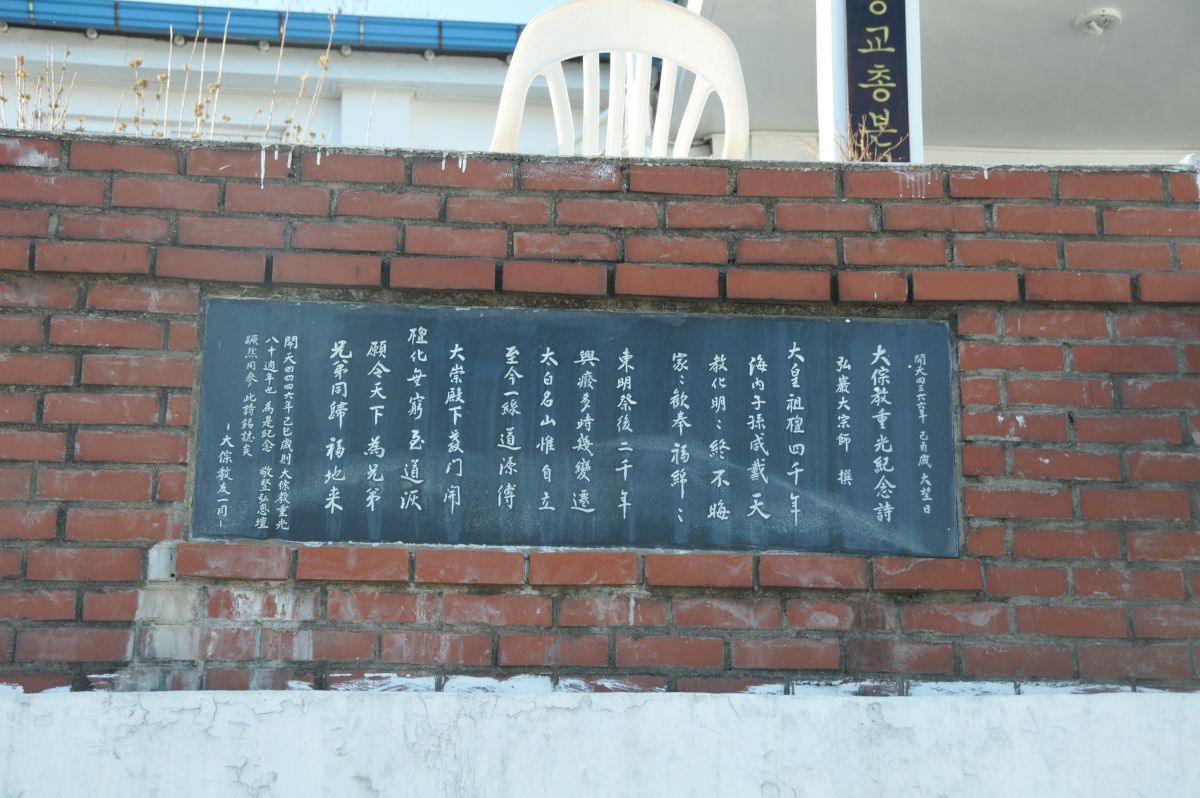 교총본
開天四三六六年 己酉歲 大望日
大倧教重光紀念詩
弘巖大宗師 撰
大皇祖檀四千年
海內子孫咸戴天
教化明〻終不晦
家〻歡奉福綿〻
東明祭後二千年
興廢多時幾變遷
太白名山惟自立
至今一線道深傳
大崇殿下教门開
檀化無窮至道恢
願令天下為兄弟
兄弟同歸福地来
開天四四四六年 己巳歲則 大倧教重光
八十週年也 為是紀念 敬竪弘恩壇
顯然同參 此詩銘誌矣
-大倧教友一同-